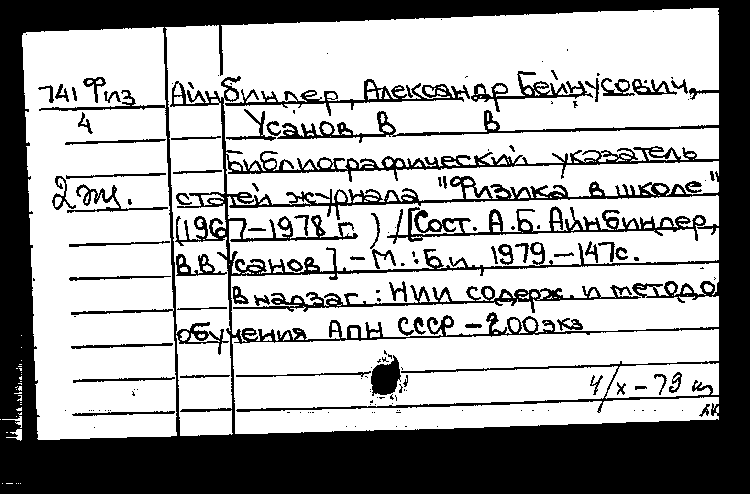 741 Физ Айнбиндер, Александр Бейнусович,
4 Усанов, В В
Библиографический указатель
2 эж. статей журнала "Физика в школе"
(1967-1978 г. ) / [Сост. А.Б. Айнбиндер,
В.В. Усанов]. - М.: Б.и., 1979. - 147с.
В надзаг.: НИИ содерж. и методо
обучения АПН СССР - 200экз.
4/х - 79